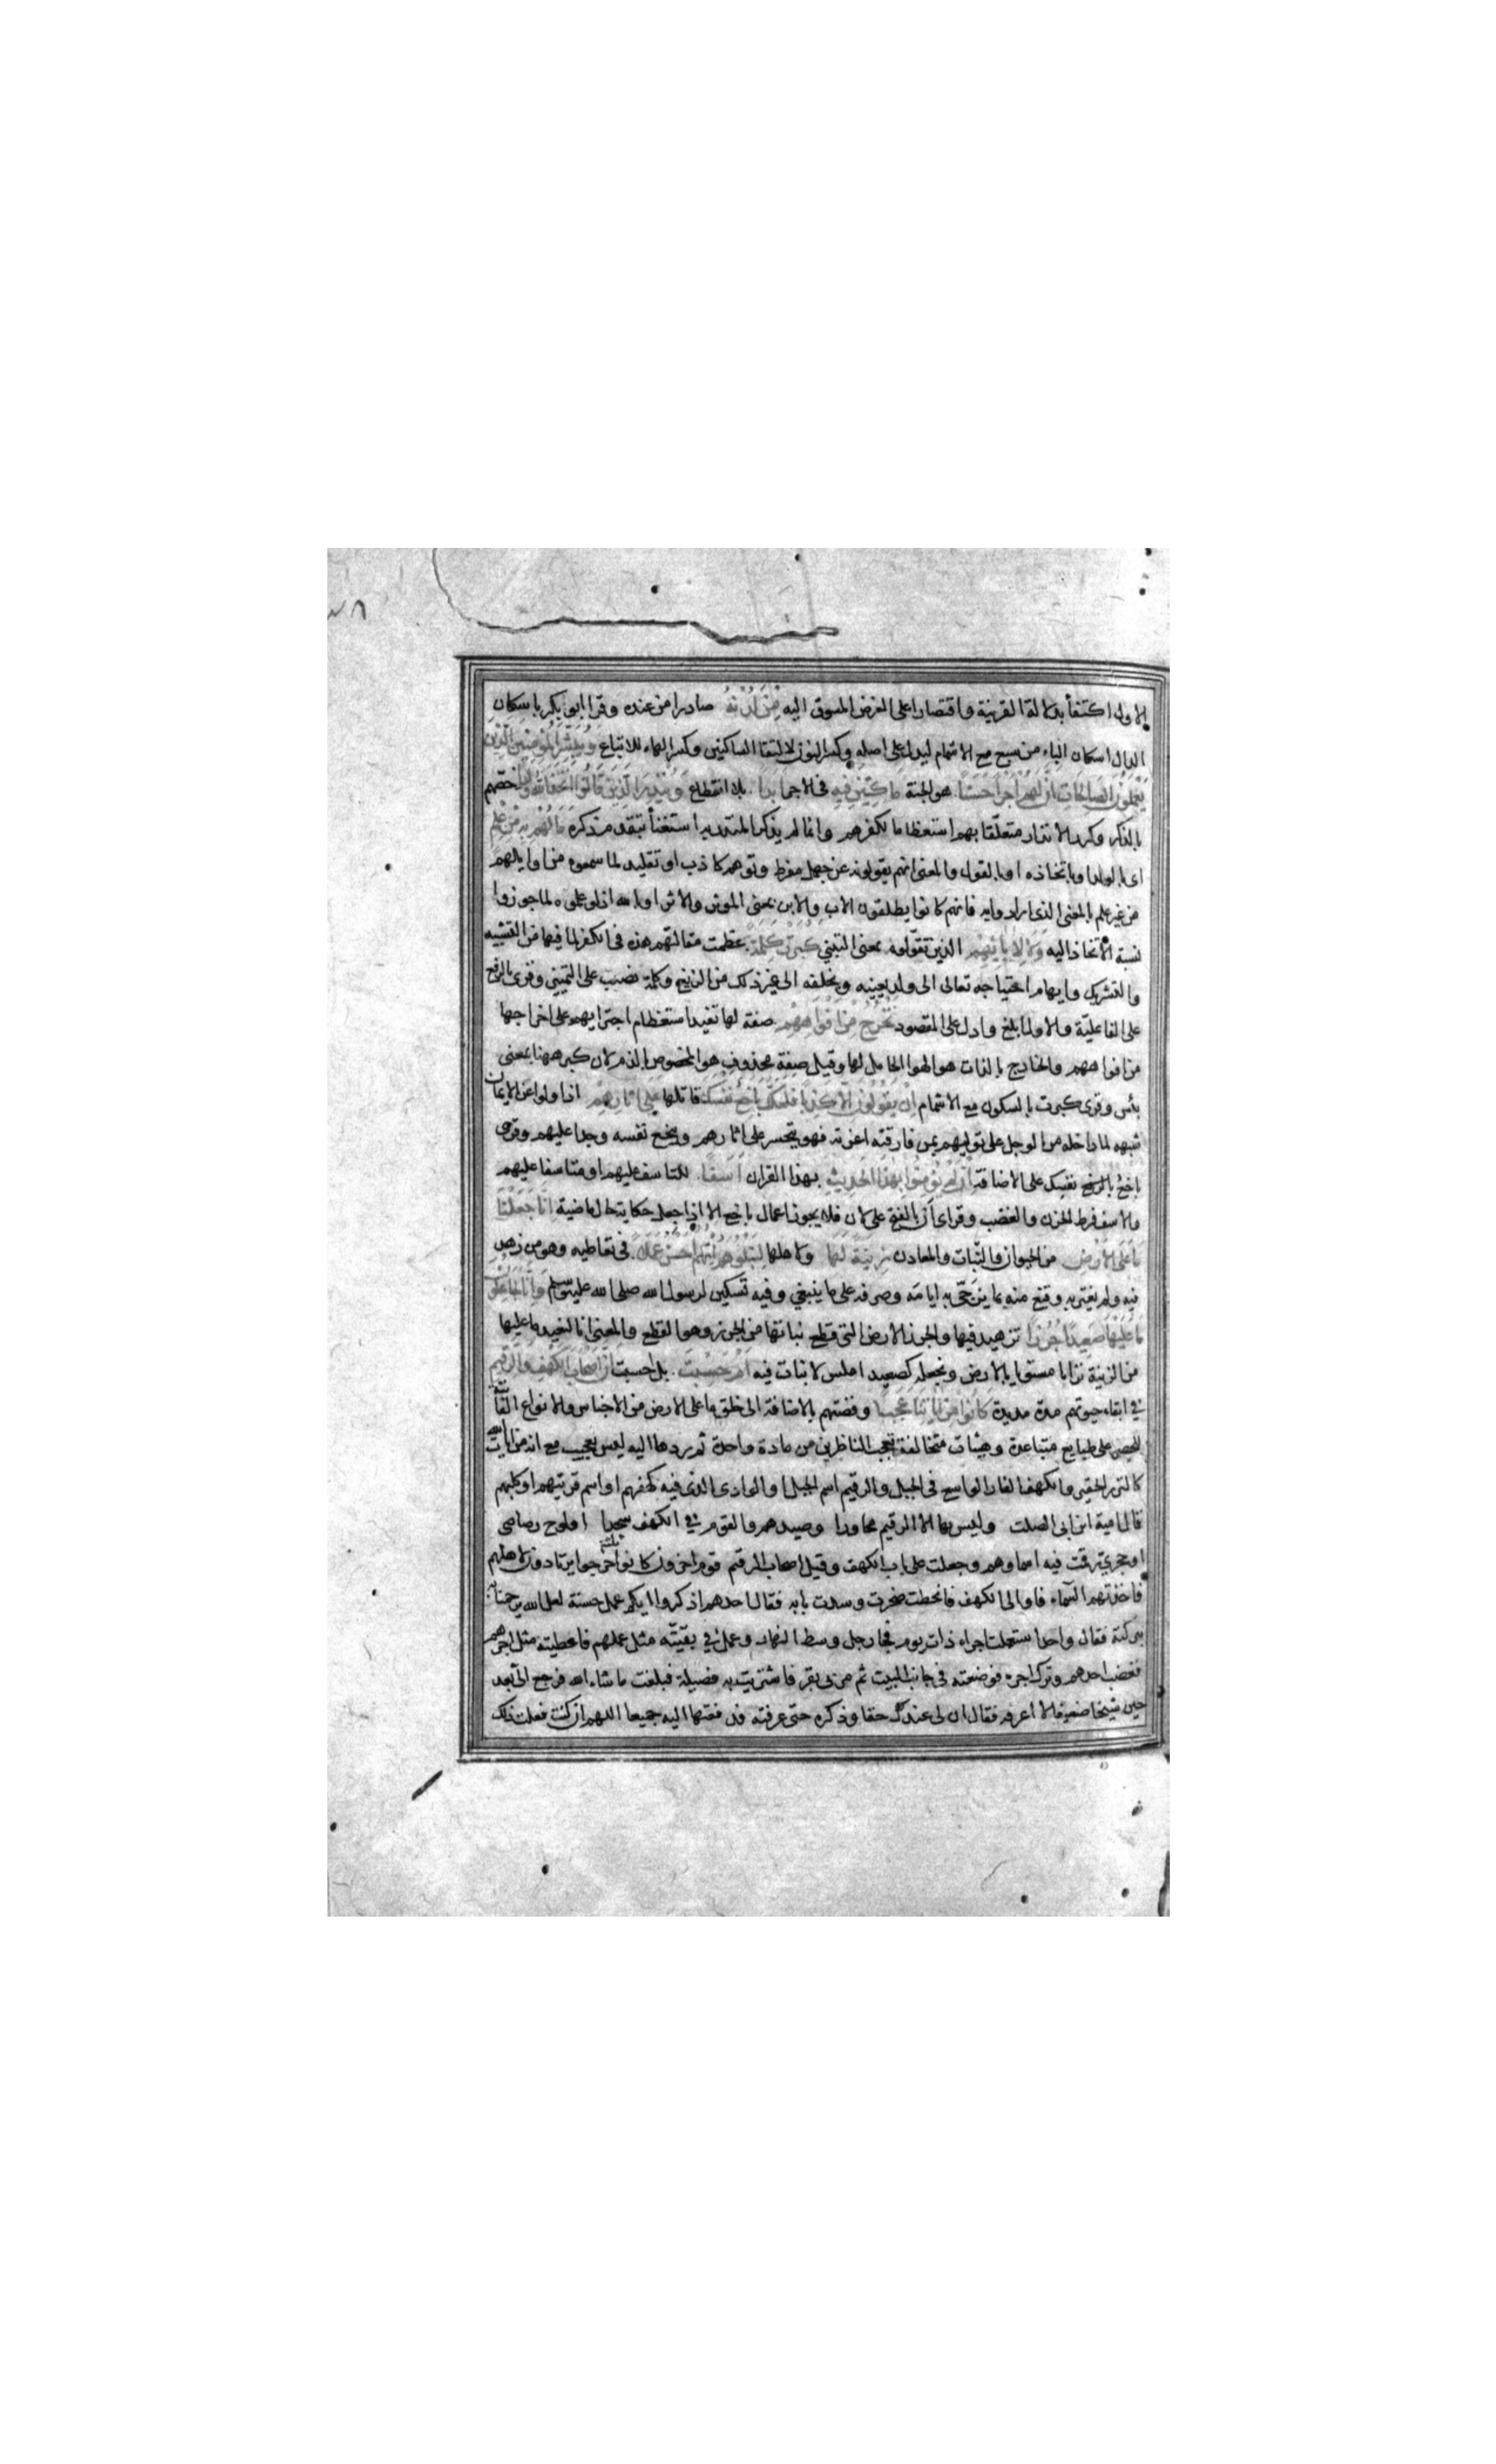 الاول اكتفأ بدلالة القرينة واقتصارا على الغرض المسوق اليه مِنْ لَدُنْهُ صادرا من عنده وقرا ابو بكر باسكان
الدال اسكان الباء من سبع مع الاشمام ليدل على اصله وكسر النون لالتقا الساكنين وكسر الهاء للاتباع وَيُبَشِّرَ الْمُؤْمِنِينَ الَّذِينَ
يَعْمَلُونَ الصَّالِحَاتِ اَنَّ لَهُمْ اَجْرًا حَسَنًا هو الجنة مَاكِثِينَ فِيهِ فى الاجر اَبَدًا بلا انقطاع وَيُنْذِرَ الَّذِينَ قَالُوا اتَّخَذَ اللهُ وَلَدًا خصهم
بالذكر وكرر الانذار متعلقا بهم استعظاما لكفرهم وانما لم يذكر المنذر به استغنأ بتقدم ذكره مَا لَهُمْ بِهِ مِنْ عِلْمٍ
اى بالولد او باتخاذه او بالقول والمعنى انهم يقولونه عن جهل مفرط وتوهم كاذب او تقليد لما سمعوه من اوايلهم
من غير علم بالمعنى الذى ارادوا به فانهم كانوا يطلقون الاب والابن بمعنى الموثر والاثر او بالله اذ لو علموه لما جوزوا
نسبة الاتخاذ اليه وَلَا لِاٰبَائِهِمْ الذين تقولوه بمعنى التبنى كَبُرَتْ كَلِمَةً عظمت مقالتهم هذه فى الكفر لما فيها من التشبيه
والتشريك وايهام احتياجه تعالى الى ولد يعينه ويخلفه الى غير ذلك من الزيغ وكلمة نصب على التمييز وقرى بالرفع
على الفاعلية والاول ابلغ وادل على المقصود تَخْرُجُ مِنْ اَفْوَاهِهِمْ صفة لها تفيد استعظام اجترايهم على اخراجها
من افواههم والخارج بالذات هو الهوا الحامل لها وقيل صفة محذوف هو المخصوص بالذم لان كبر ههنا بمعنى
بأس وقرى كبرت بالسكون مع الاشمام اِنْ يَقُولُونَ اِلَّا كَذِبًا فَلَعَلَّكَ بَاخِعٌ نَفْسَكَ قاتلها عَلَى اٰثَارِهِمْ اذا ولوا عن الايمان
شبهه لما داخله من الوجد على توليهم بمن فارقته اعزته فهو يتحسر على اثارهم ويبخع نفسه وجدا عليهم وقرى
باخع نفسك على الاضافة اِنْ لَمْ يُؤْمِنُوا بِهٰذَا الْحَدِيثِ بهذا القران اَسَفًا للتاسف عليهم او متاسفا عليهم
والاسف فرط الحزن والغضب وقراى اَن بالفتح على لان فلا يجوز اعمال باخع الا اذا جعل حكاية حال ماضية اِنَّا جَعَلْنَا
مَا عَلَى الْاَرْضِ من الحيوان والنّبات والمعادن زِينَةً لَهَا ولاهلها لِنَبْلُوَهُمْ اَيُّهُمْ اَحْسَنُ عَمَلًا فى تعاطيه وهو من زهد
فيه ولم يغتر به وقنع منه بما يزجّى به ايامه وصرفه على ما ينبغى وفيه تسكين لرسول الله صلى الله عليه وسلم وَاِنَّا لَجَاعِلُونَ
مَا عَلَيْهَا صَعِيدًا جُرُزًا تزهيد فيها والجرز الارض التى قطع نباتها من الجرز وهو القطع والمعنى انا لنعيد ما عليها
من الزينة ترابا مستويا بالارض ونجعله كصعيد املس لا نبات فيه اَمْ حَسِبْتَ بل احسبت اَنَّ اَصْحَابَ الْكَهْفِ وَالرَّقِيمِ
فى ابقاء حيوتهم مدة مديدة كَانُوا مِنْ اٰيَاتِنَا عَجَبًا وقصتهم بالاضافة الى خلق ما على الارض من الاجناس والانواع الفائتة
للحصر على طبايع متباعدة وهيئات متخالفة تعجب الناظرين من مادة واحدة ثم ردها اليه ليس بعجيب مع انه من ايات الله
كالنزر الحقير والكهف الغار الواسع فى الجبل والرقيم اسم الجبل او الوادى الذى فيه كهفهم او اسم قريتهم او كلبهم
قال امية ابن ابى الصلت وليس بها الا الرقيم مجاورا وصيدهم والقوم فى الكهف او لوح رصاصى
او حجرى رقمت فيه اسماوهم وجعلت على باب الكهف وقيل اصحاب الرقيم قوم اخرون كانوا ثلثة خرجوا يرتادون لاهلهم
فاخذتهم السّماء فاووا الى الكهف فانحطت صخرة وسدت بابه فقال احدهم اذكروا ايكم عمل حسنة لعل الله يرحمنا
ببركته فقال واحد استعملت اجراء ذات يوم فجا رجل وسط النهار وعمل فى بقيّته مثل عملهم فاعطيته مثل اجرهم
فغضب احدهم وترك اجره فوضعته فى جانب البيت ثم مر بى بقر فاشتريت به فصيلة فبلغت ما شاء الله فرجع الىّ بعد
حين شيخا ضعيفا لا اعرفه فقال ان لى عندك حقا وذكره حتى عرفته فدفعتها اليه جميعا اللهم ان كنت فعلت ذلك